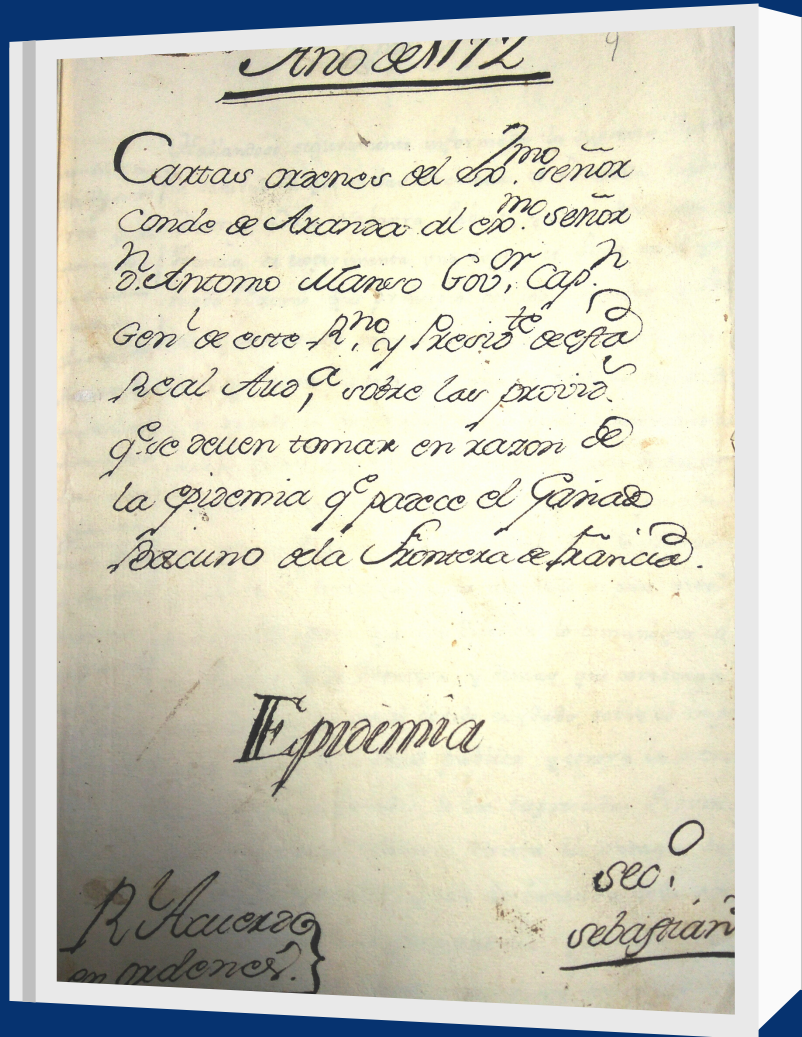 Año de 1772
4
Cartas ordenes del exmo. señor
Conde de Aranda al exmo. señor
Dn. Antonio Manso Govor. Capn.
Genl. de este Rno. y Preside. de esta
Real Auda. sobre las provids.
qe. se deuen tomar en razon de
la epidemia qe. padece el Ganado
Bacuno dela Frontera de francia.
Epidemia
Rl. Acuerdo
en ordenes.
seco.
sebastián